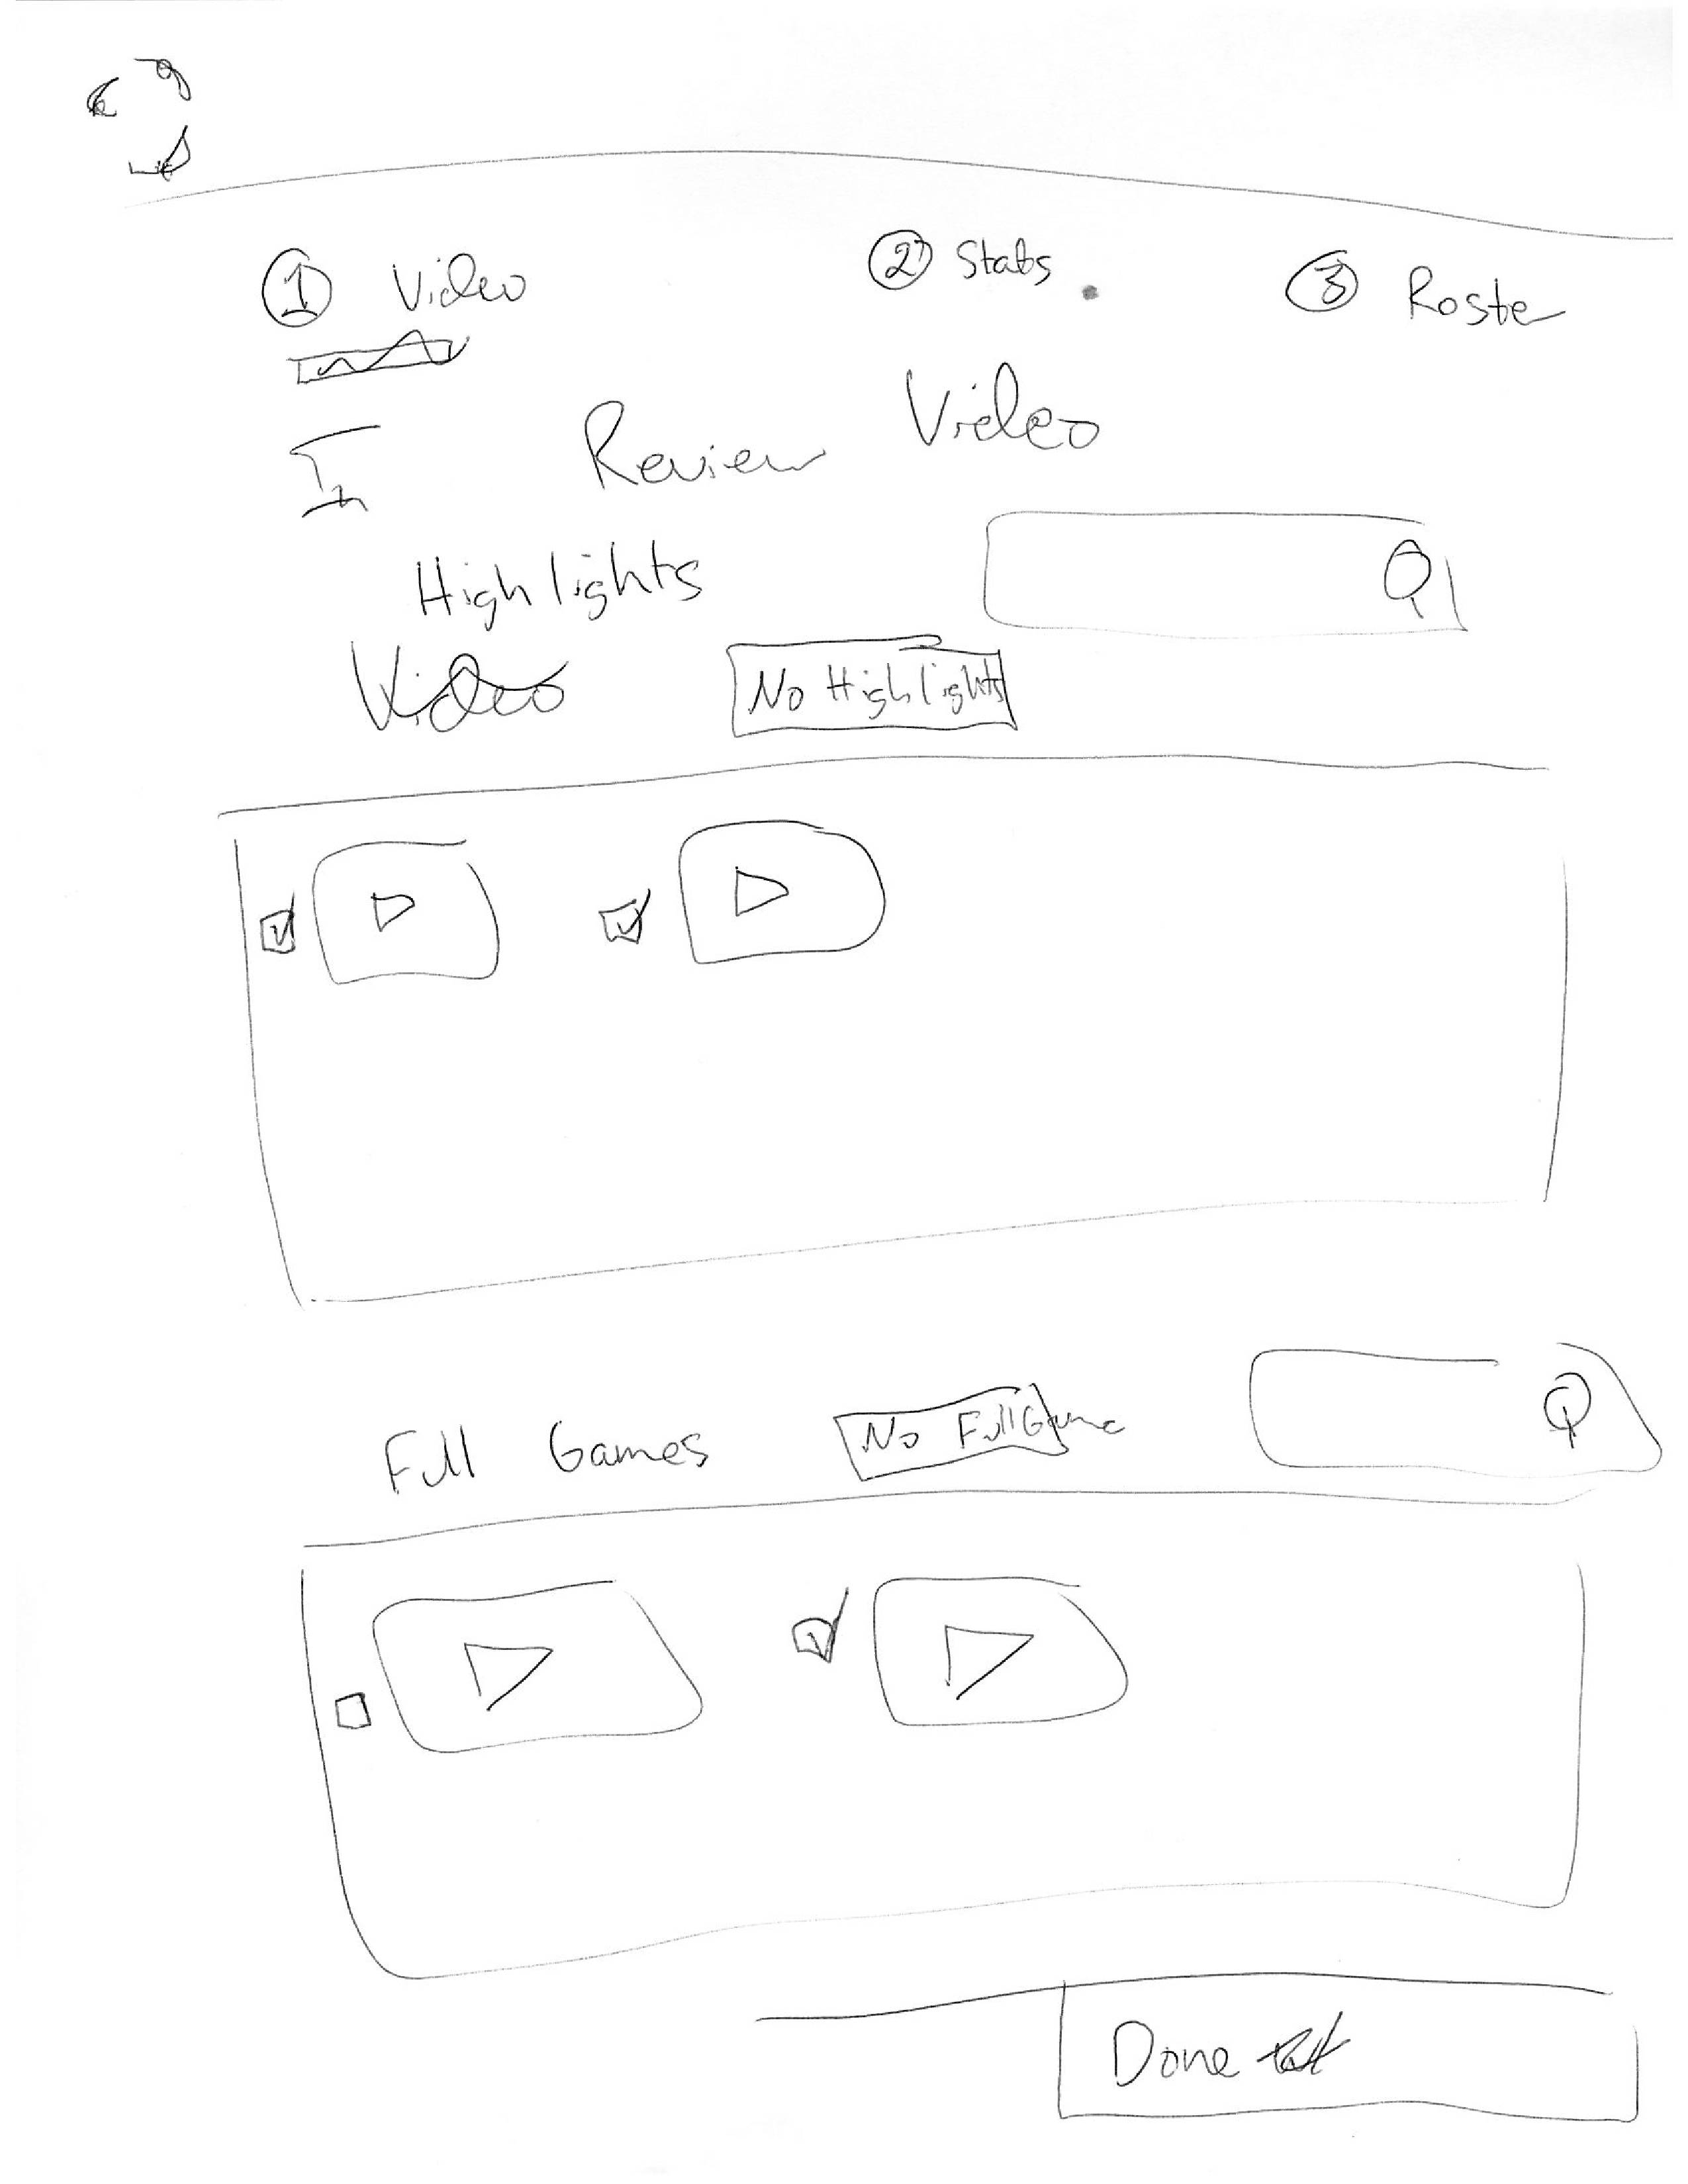 ① Video ② Stats ③ Roster
In Review Video
Highlights
Video No Highlights
Full Games No Full Game
Done